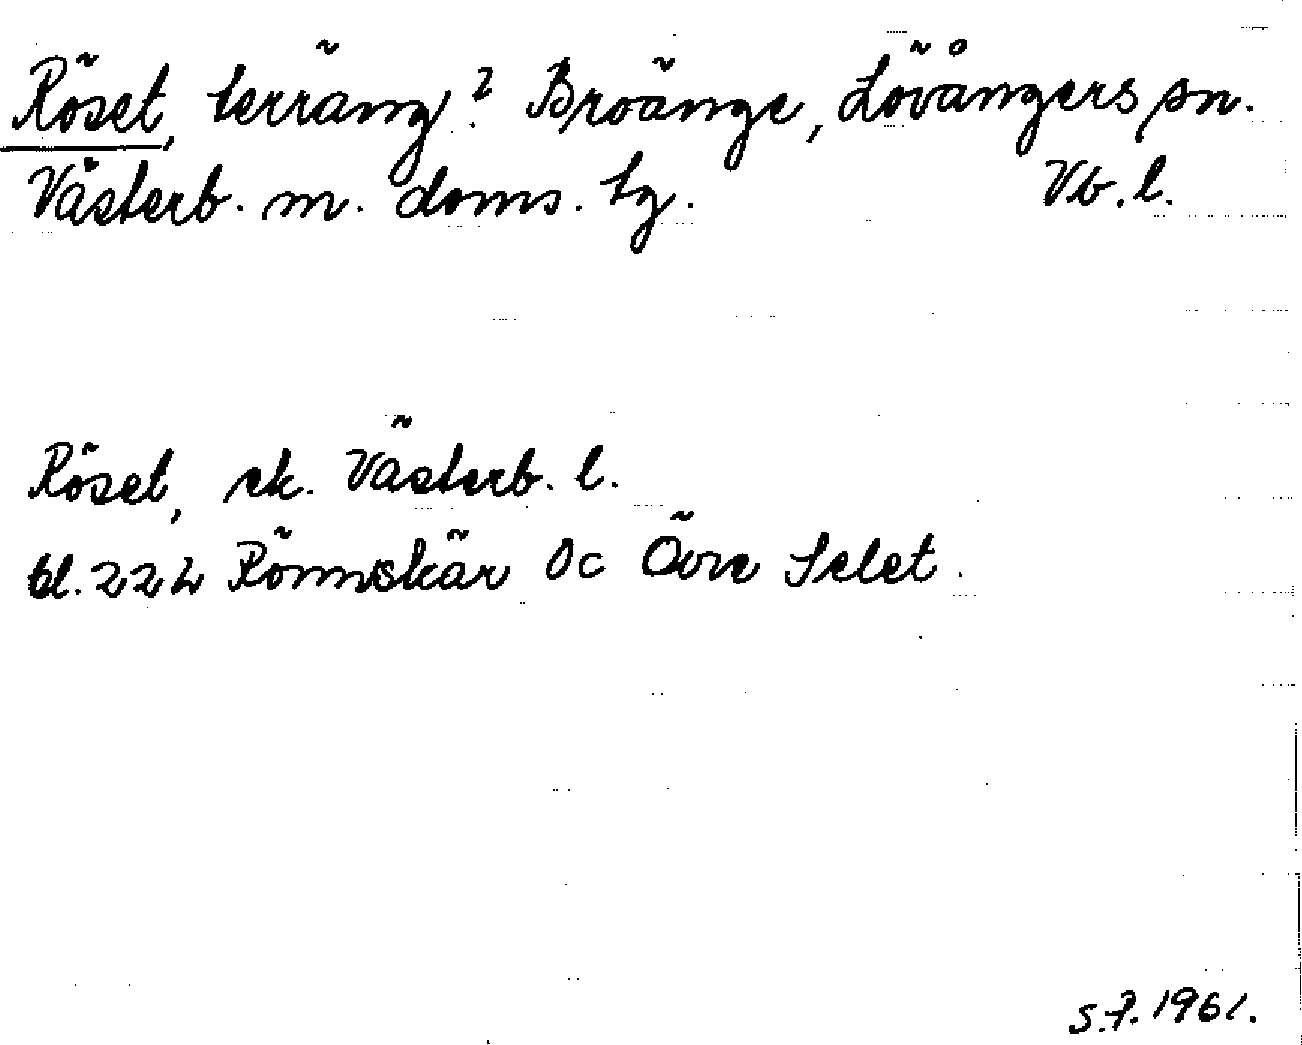 Röset, terräng? Broänge, Lövångers sn.
Västerb. m. doms. tg. Vb. l.
Röset, ek. Västerb. l.
bl. 222 Rönnskär Oc Övre Selet.
S.F. 1961.